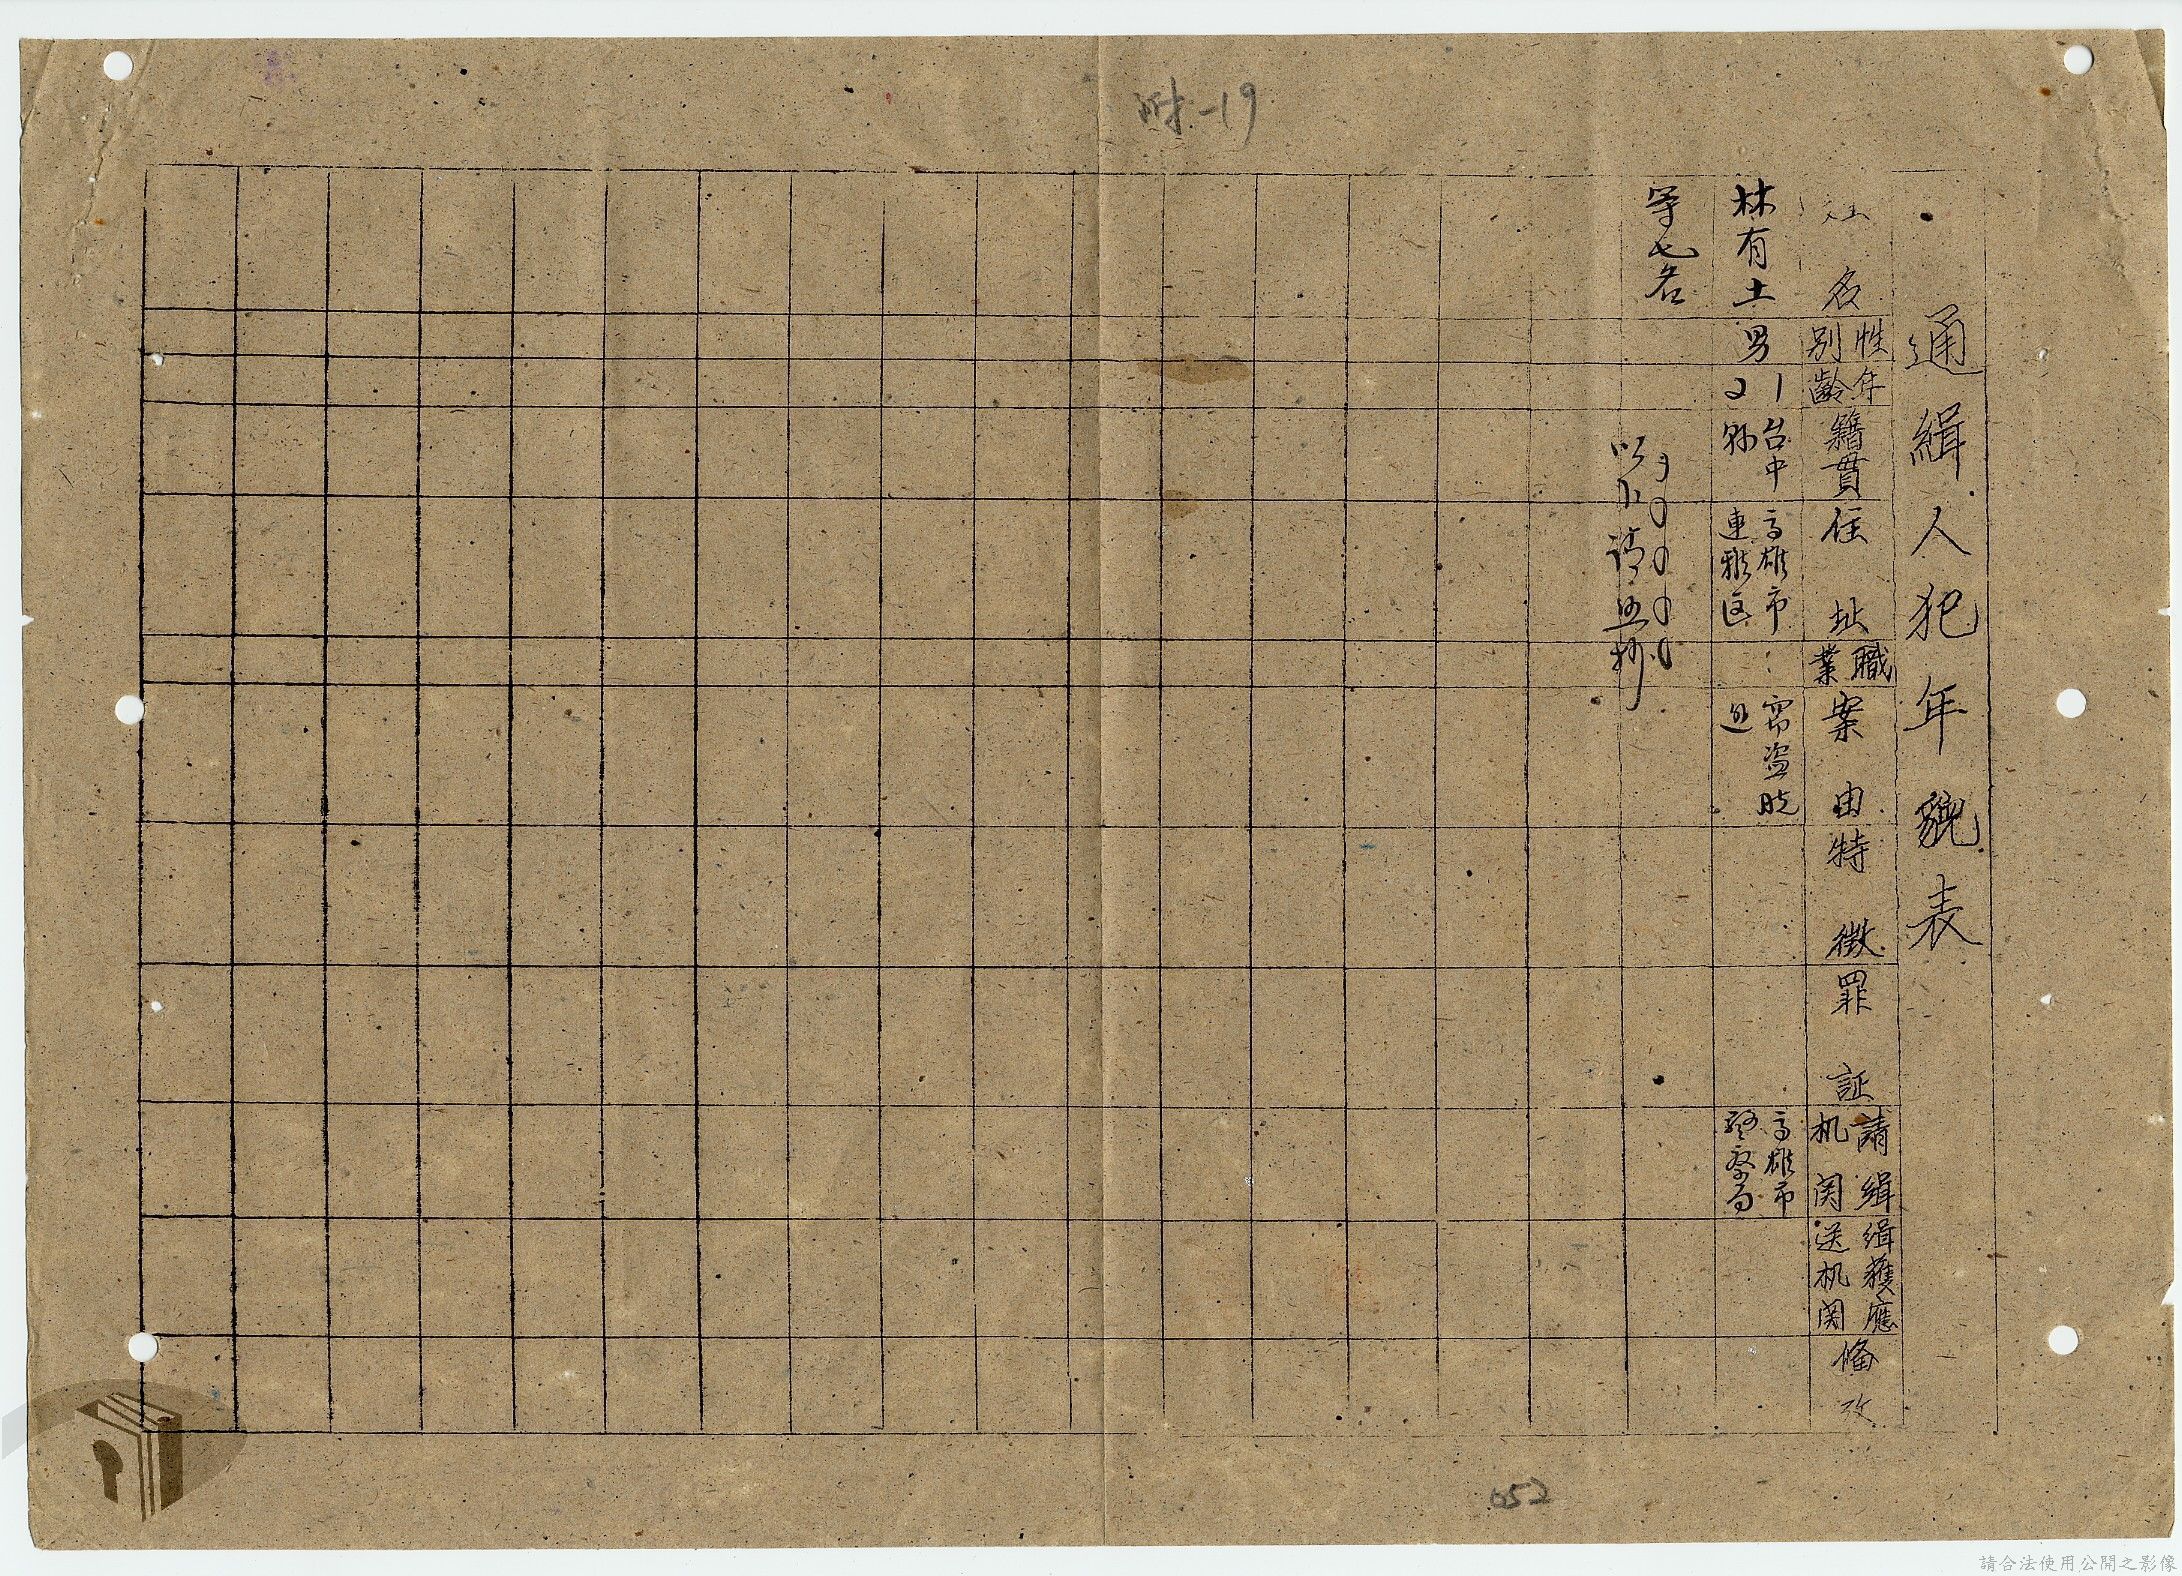 附-19
通緝人犯年貌表
姓名
性別
年齡
籍貫
住址
職業
案由
特徵
罪証
請緝机関
緝獲應送机関
備攷
林有土
男
21
台中縣
高雄市連雅区
窃盗脱逃
高雄市警察局
等七名
以下請照抄
052
請合法使用公開之影像